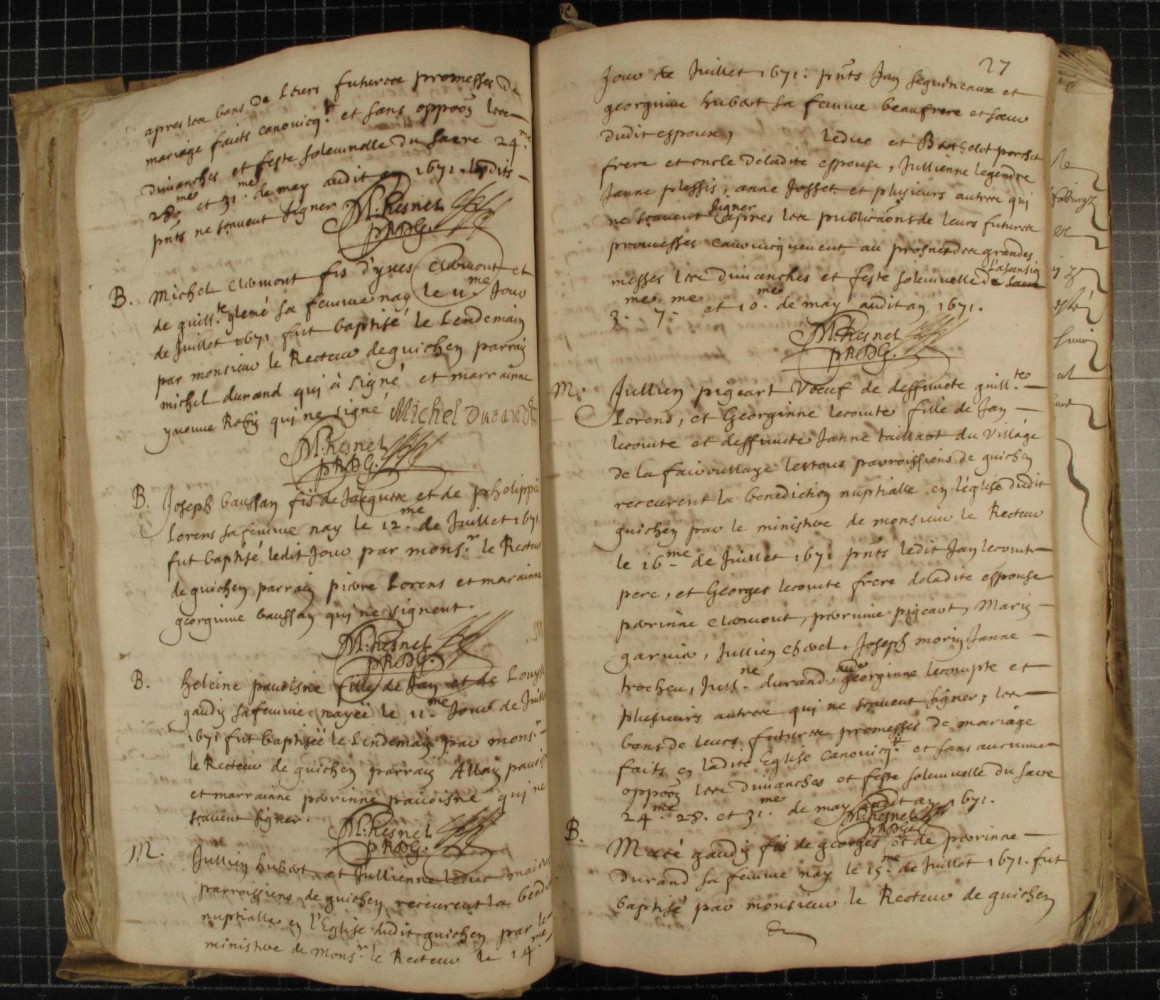 apres les bans de leurs futures promesses de
mariage faits canonicq.t et sans oppoon les
dimanches et feste solemnelle du sacre 24.me
28.me et 31.me de may audit an 1671. lesdits
pnts ne scavent signer M. Resnel
PRDG.
B. Michel clemont fis d'yves clemont et
de guill.te glemé sa femme nay le 11.me Jour
de Juillet 1671 fut baptisé le lendemain
par monsieur le Recteur de guichen parrain
michel durand qui a signé et marrainne
yvonne Robin qui ne signe Michel Durand
M. Resnel
PRDG.
B. Joseph baussan fis de Jacques et de pholippe
Lorens sa femme nay le 12.me de Juillet 1671
fut baptisé ledit Jour par mons.r le Recteur
de guichen parrain pierre Lorens et marainne
georginne baussan qui ne signent.
M. Resnel
PRDG.
B. heleine pavoisne fille de Jan et de Louyse
gaudin sa femme nayée le 11.me Jour de Juillet
1671 fut baptisée le lendemain par mons.r
le Recteur de guichen parrain Allain pavoisne
et marrainne perrinne pavoisne qui ne
scavent signer. M. Resnel
PRDG.
M. Jullien hubert et Jullienne leduc
parroissiens de guichen receurent la
nuptialle en l'Eglise dudit guichen par le
ministere de mons.r le Recteur le 14.me
27
Jour de Juillet 1671. pnts Jan seguineaux et
georginne hubert sa femme beaufrere et soeur
dudit espoux, leduc et Berthelot porcher
frere et oncle de ladite espouse, Jullienne legendre
Janne plessis, anne Josset et plusieurs autres qui
ne scavent signer apres les publications de leurs futures
promesses canonicquement au prosne des grandes
messes les dimanches et feste solemnelle de l'ascension
3.me 7.me et 10.me de may audit an 1671.
M. Resnel
PRDG.
M. Jullien pigeart Voeuf de deffuncte guill.te
Lorend, et Georginne lecomte fille de Jan
lecomte et deffuncte Janne taillart du Village
de la les tous parroissiens de guichen
receurent la benediction nuptialle en l'eglise dudit
guichen par le ministere de monsieur le Recteur
le 16.me de Juillet 1671 pnts ledit Jan lecomte
pere, et Georges lecomte frere deladite espouse
perrinne clemont, perrinne pigeart, Marie
garnier, Jullien chevel, Joseph morin, Janne
trocheu, Jull.ne durand, georginne lecompte et
plusieurs autres qui ne scavent signer; les
bans de leurs futures promesses de mariage
faits en ladite Eglise canonicq.t et sans aucunne
oppoon les dimanches et feste solemnelle du sacre
24.me 28. et 31.me de may audit an 1671.
M. Resnel
PRDG.
B. Maté gaudin fis de georges et de perrinne
durand sa femme nay le 15.me de Juillet 1671. fut
baptisé par monsieur le Recteur de guichen